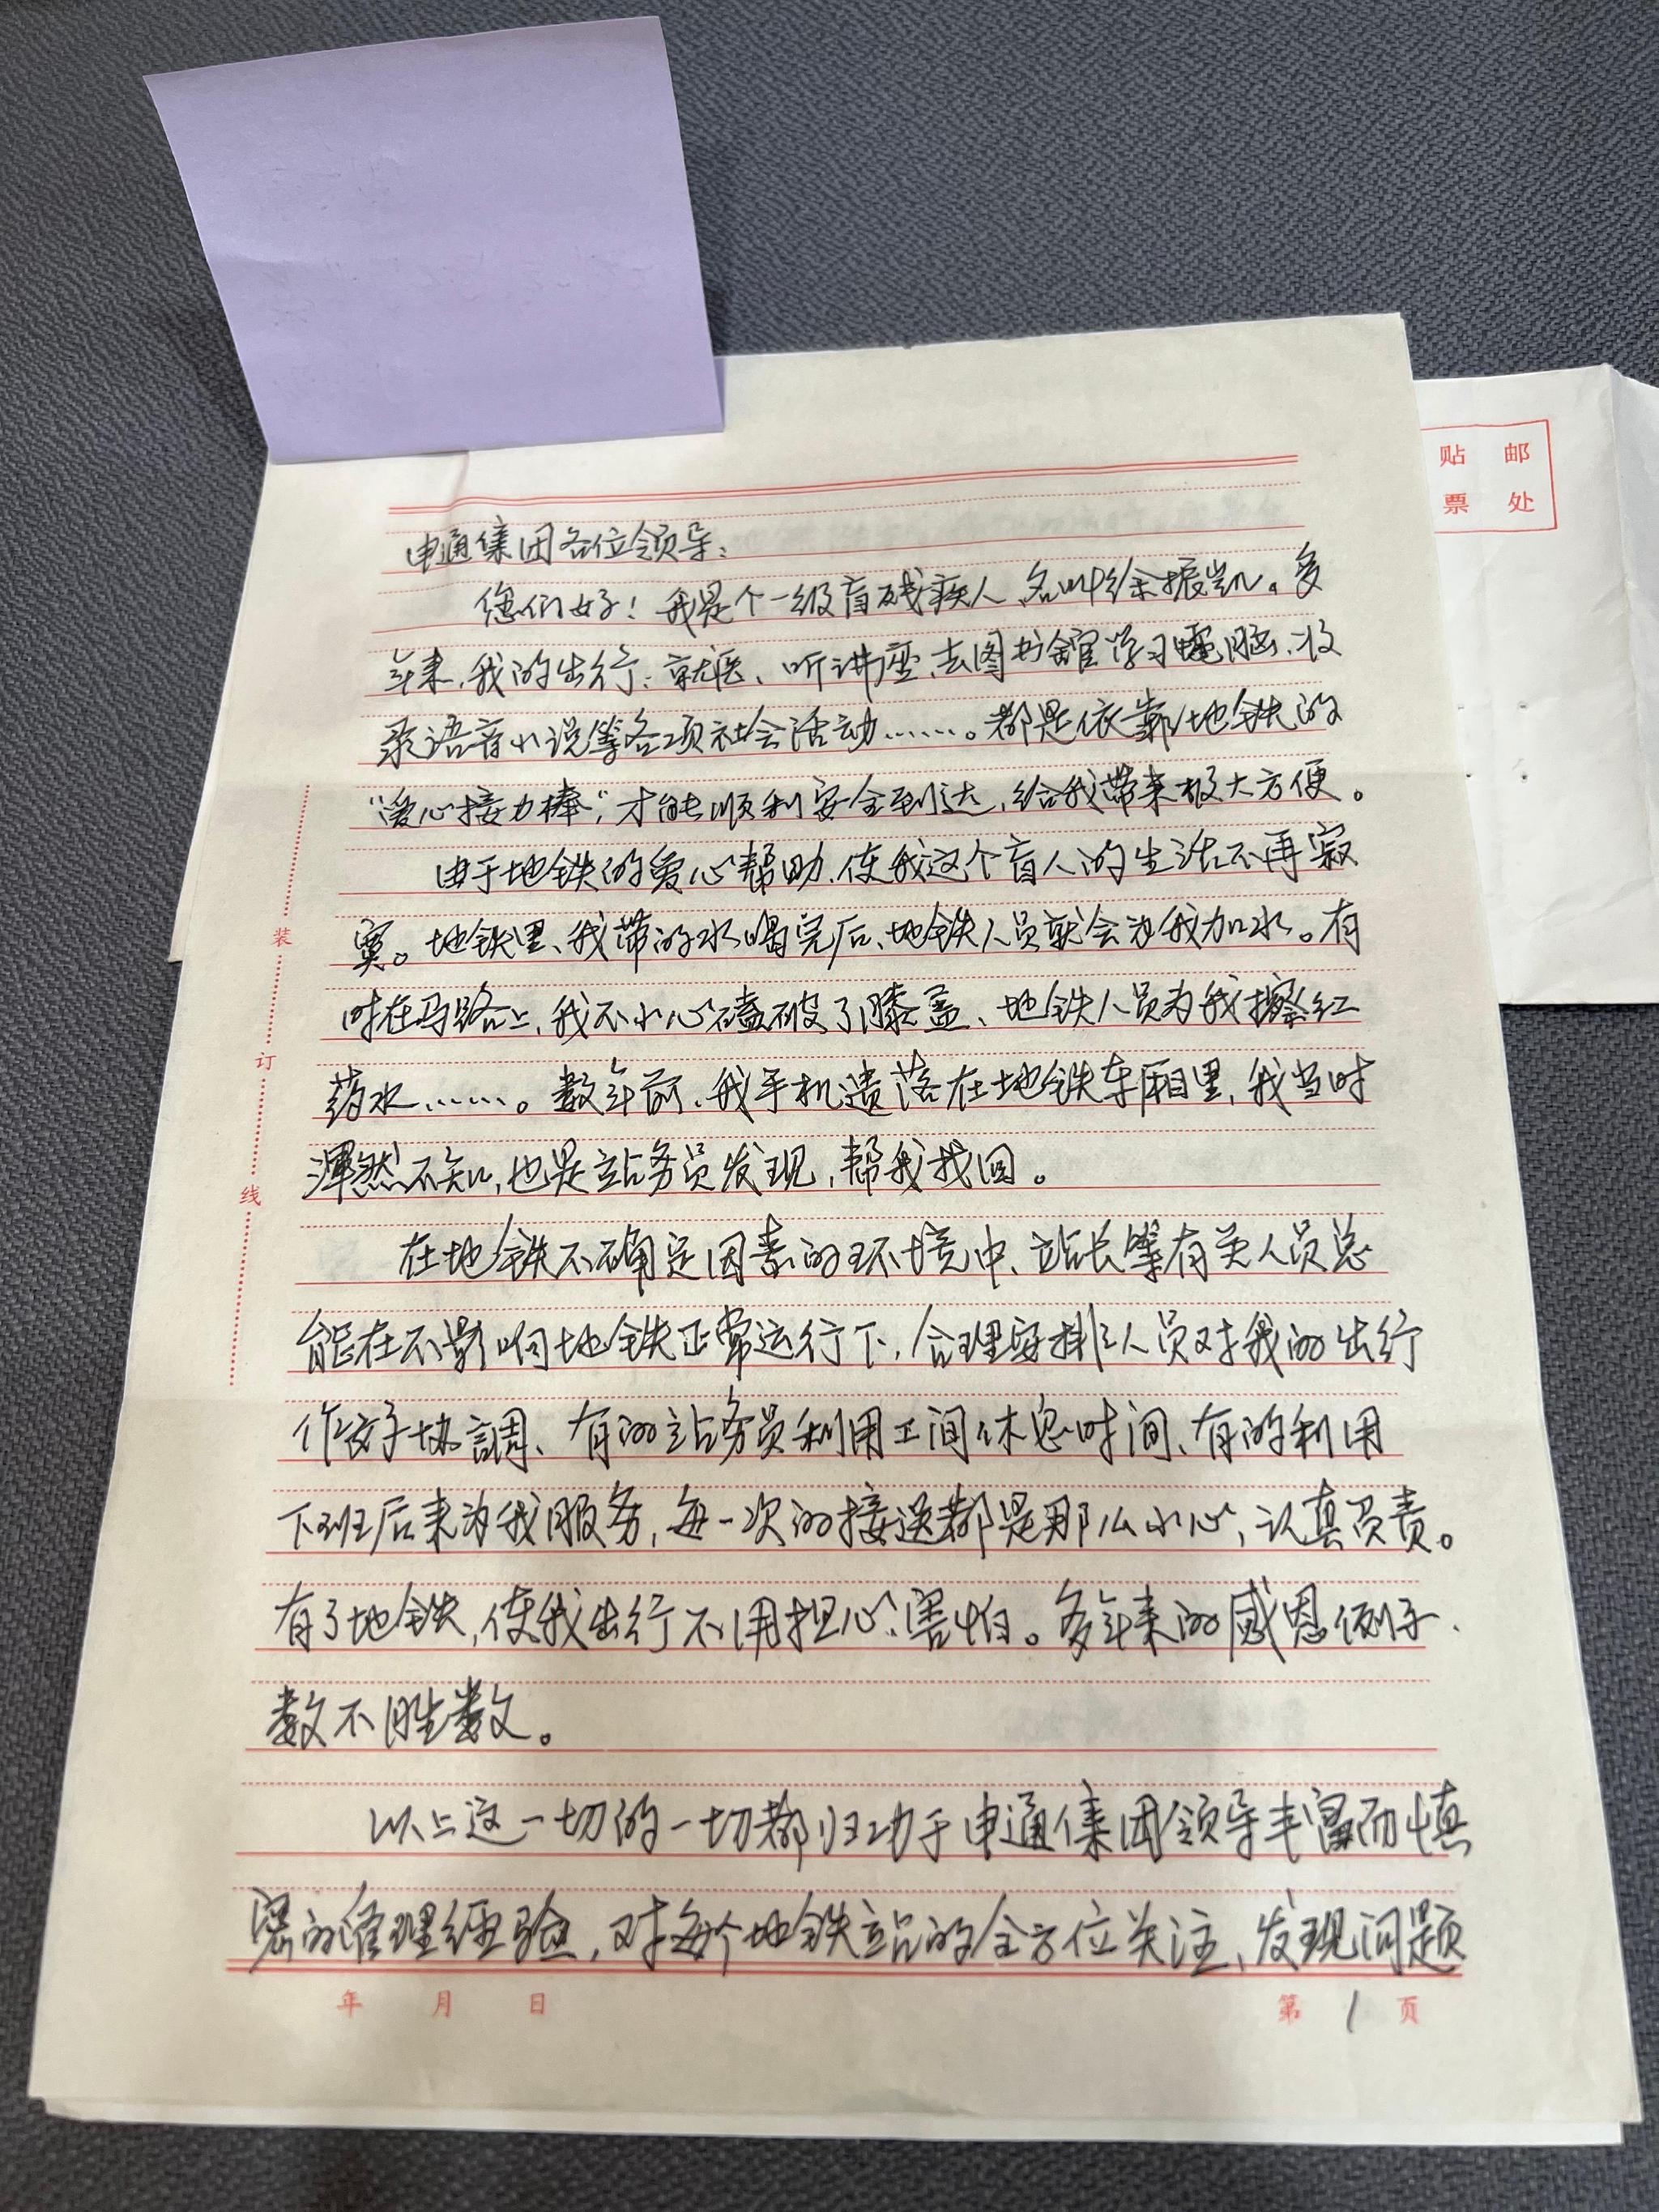 贴 邮
票 处
申通集团各位领导：
您们好！我是个一级盲残疾人、名叫徐振凯。多
年来，我的出行：就医、听讲座、去图书馆学习电脑、收
录语音小说等各项社会活动……。都是依靠地铁的
“爱心接力棒”，才能顺利安全到达，给我带来极大方便。
由于地铁的爱心帮助，使我这个盲人的生活不再寂
寞。地铁里、我带的水喝完后、地铁人员就会为我加水。有
时在马路上，我不小心磕破了膝盖、地铁人员为我擦红
药水……。数年前、我手机遗落在地铁车厢里，我当时
浑然不知，也是站务员发现，帮我找回。
在地铁不确定因素的环境中、站长等有关人员总
能在不影响地铁正常运行下，合理安排人员对我的出行
作好协調、有的站务员利用工间休息时间、有的利用
下班后来为我服务，每一次的接送都是那么小心，认真负责。
有了地铁，使我出行不用担心、害怕。多年来的感恩例子、
数不胜数。
以上这一切的一切都归功于申通集团领导丰富而慎
密的管理经验，对每个地铁站的全方位关注、发现问题
装
订
线
年 月 日
第 1 页